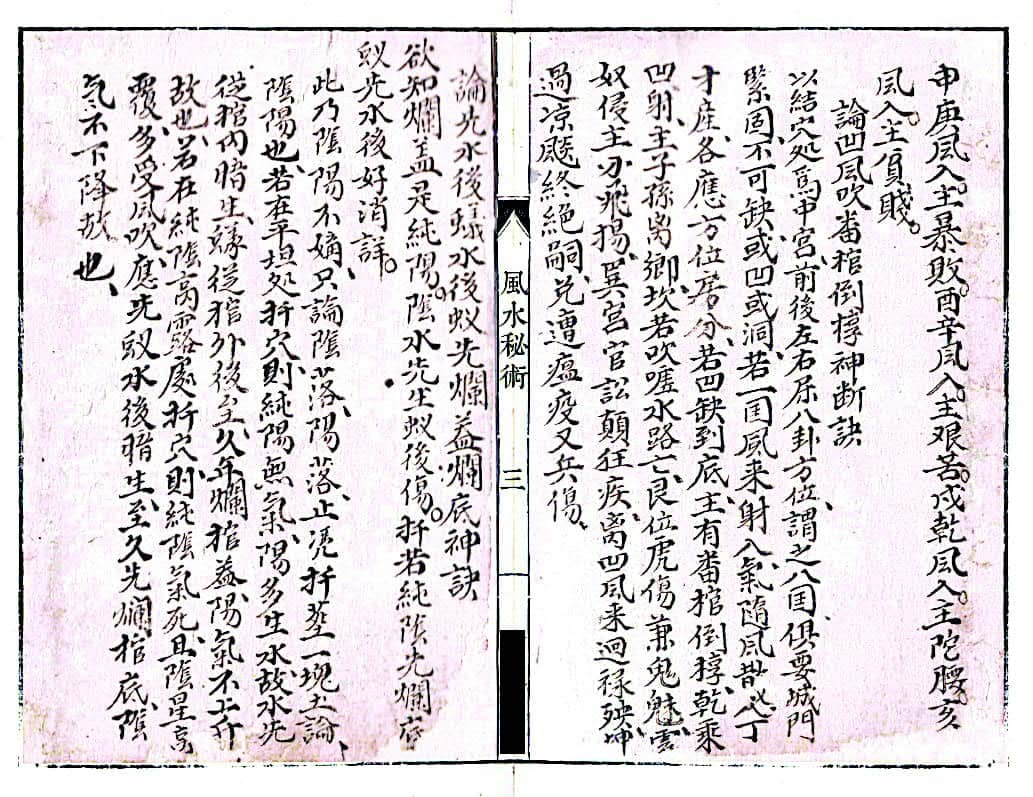 申庚風入主暴敗酉辛風入主艱苦戍乾風入主陀腰亥
風入主貧賤
論凹風吹畨棺倒椁神断訣
以結穴処爲中宮前後左右屈八卦方位謂之八国俱要城門
緊固不可缺或凹或洞若一国風来射入氣随風散必人丁
才産各應方位房分若凹缺到底主有畨棺倒椁乾乘
凹射主子孫离鄉坎若吹嗟水路亡艮位虎傷兼鬼魅雲
奴侵主刃飛揚巽宮官訟顛狂疾离凹風来迴禄殃坤
過凉颷終絶嗣兑遭瘟疫又兵傷
風水秘術
三
論先水後蟻水後蚁先爛盖爛底神訣
欲知爛盖是純陽隂水先生蚁後傷扦若純隂先爛底
蚁先水後好消詳
此乃隂陽不嫡只論隂落陽落止凴扦塟一塊土論
隂陽也若在平坦処扦穴則純陽無氣陽多生水故水先
從棺内暗生蟓從棺外後至久年爛棺盖陽氣不上升
故也若在純隂高露處扦穴則純隂氣死且隂星高
覆多受風吹應先蚁水後暗生至久先爛棺底隂
气不下降故也